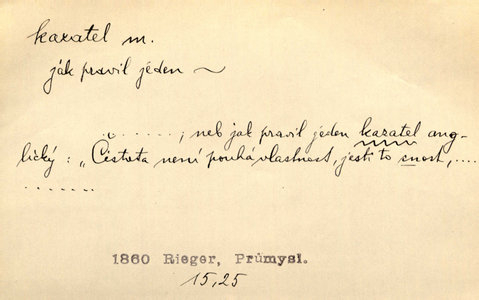 kazatel m.
ják pravil jéden ~
......, neb jak pravil jéden kazatel ang-
lický: „Čistota není pouhá vlastnost, jesti to snost, ....
......
1860 Rieger, Průmysl.
15,25